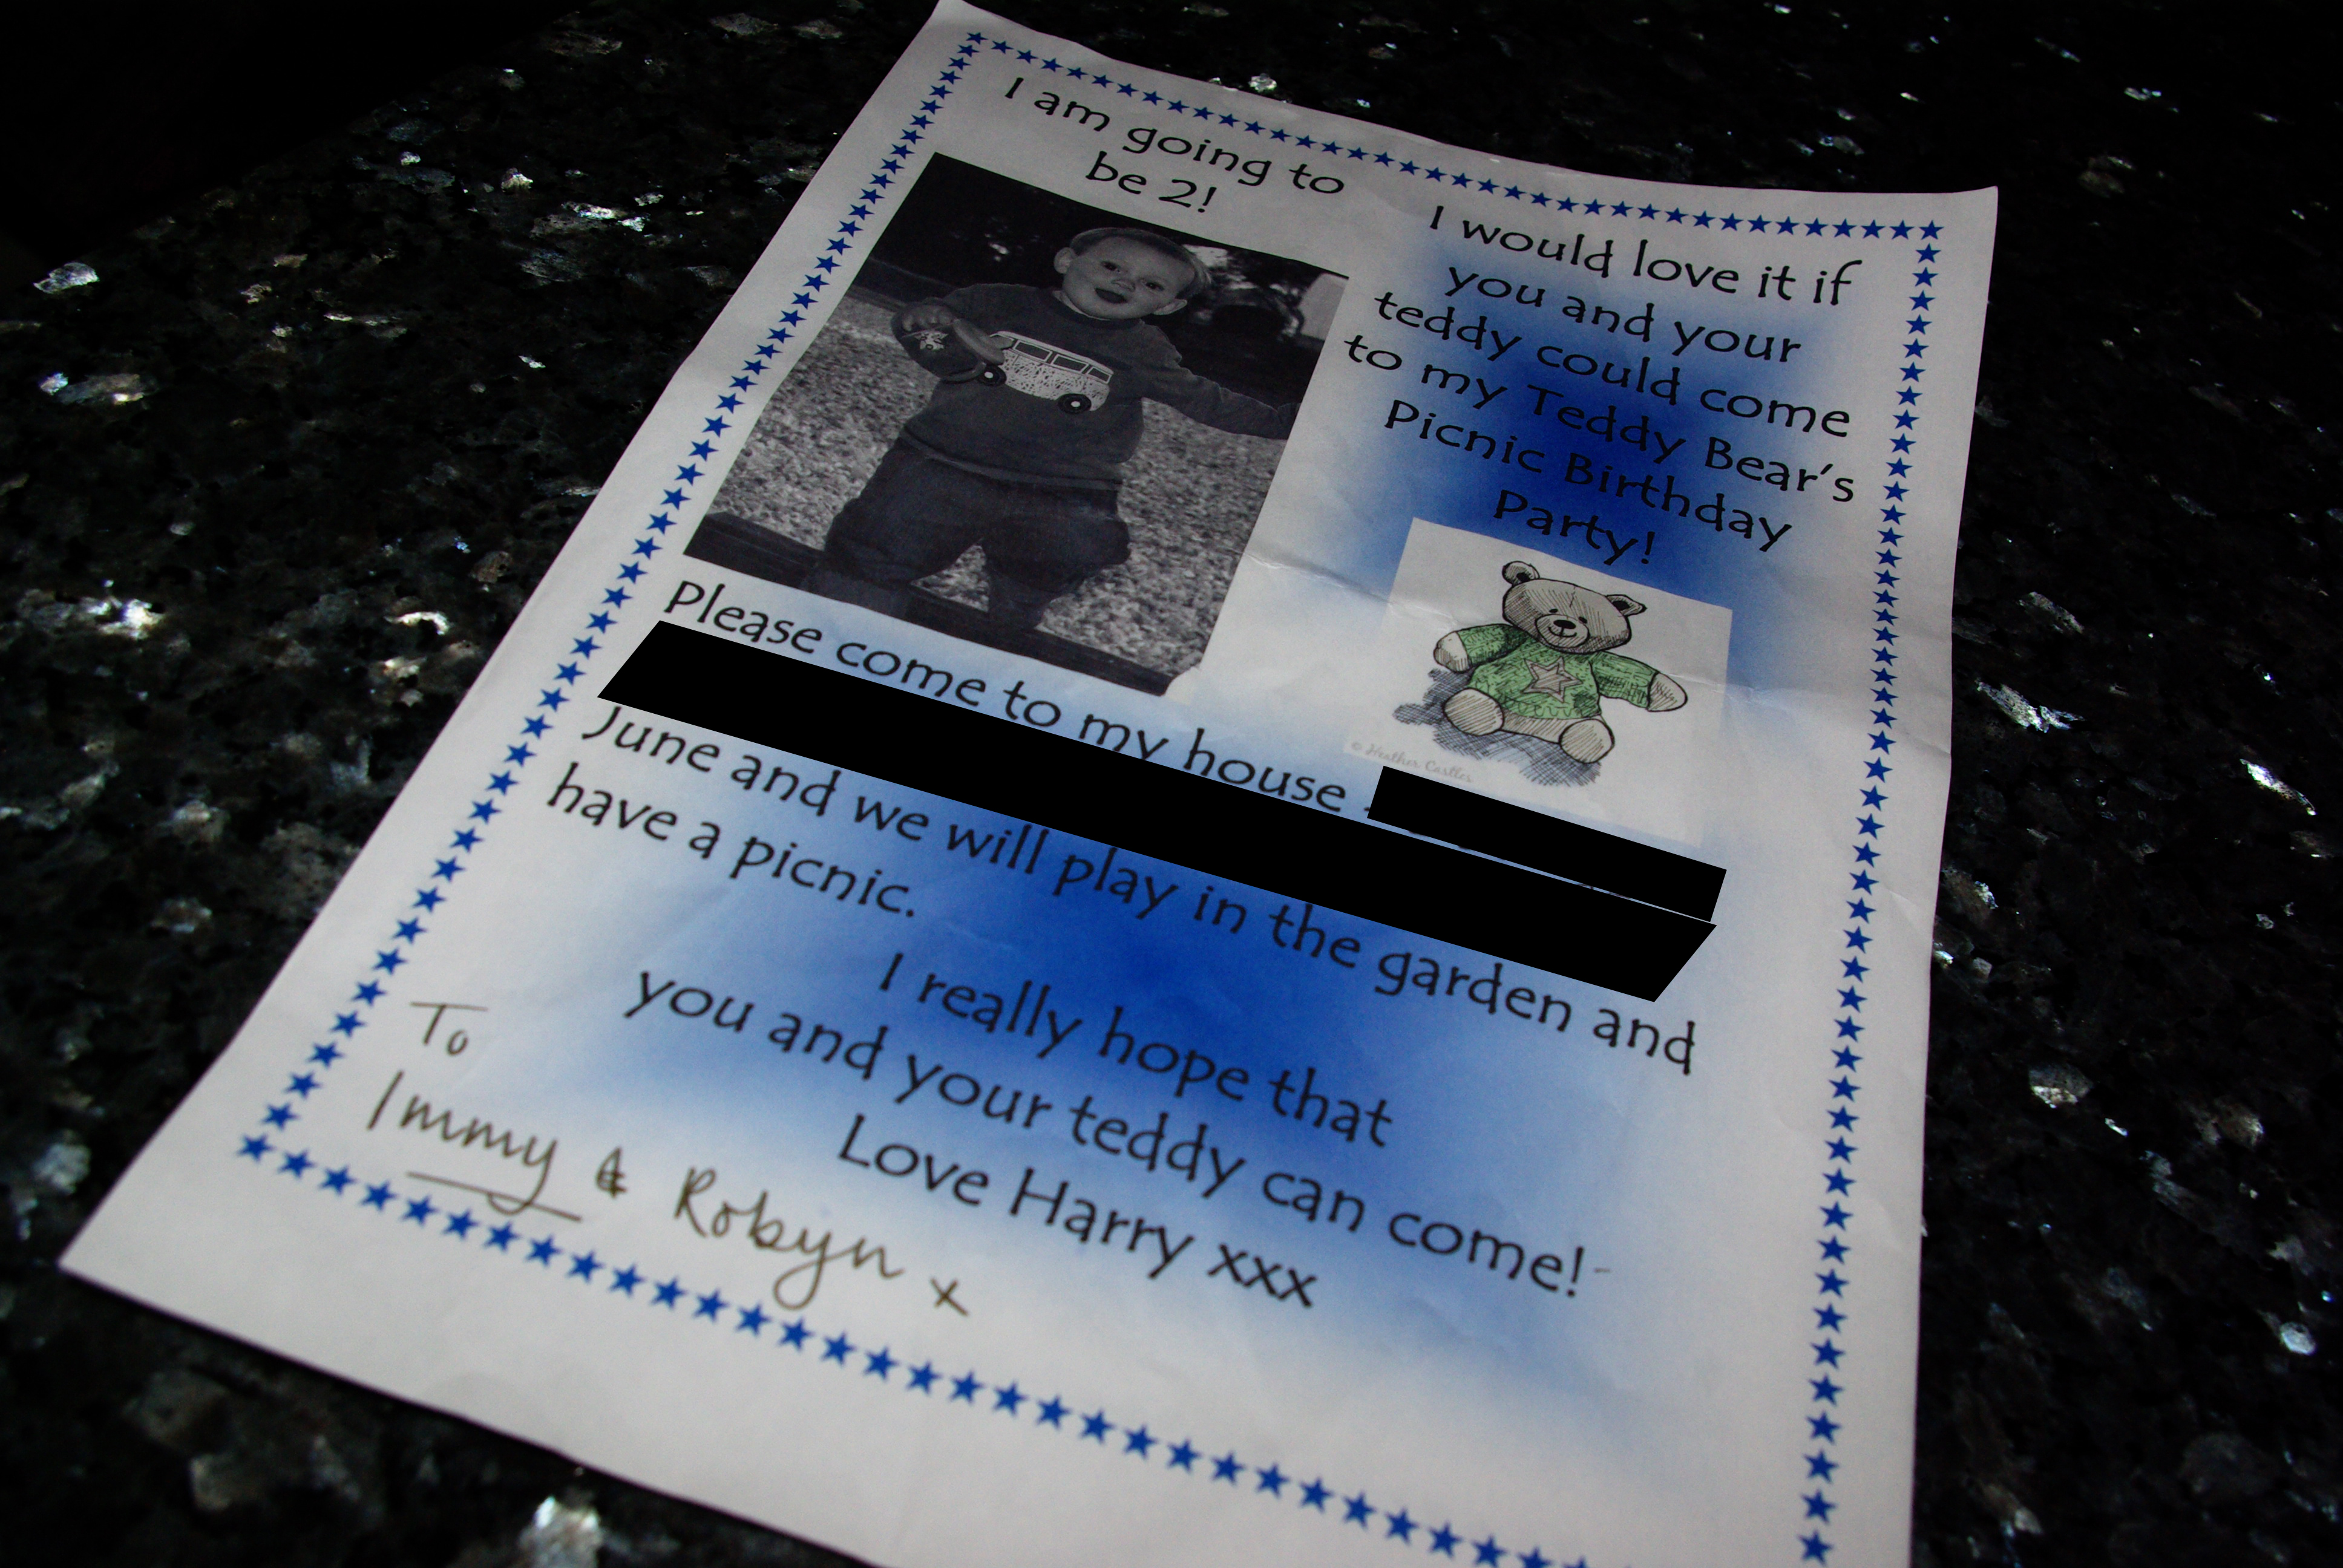 I am going to
be 2!
I would love it if
you and your
teddy could come
to my Teddy Bear's
Picnic Birthday
Party!
© Heather Castles
Please come to my house -
June and we will play in the garden and
have a picnic.
I really hope that
you and your teddy can come!
Love Harry xxx
To
Immy & Robyn x